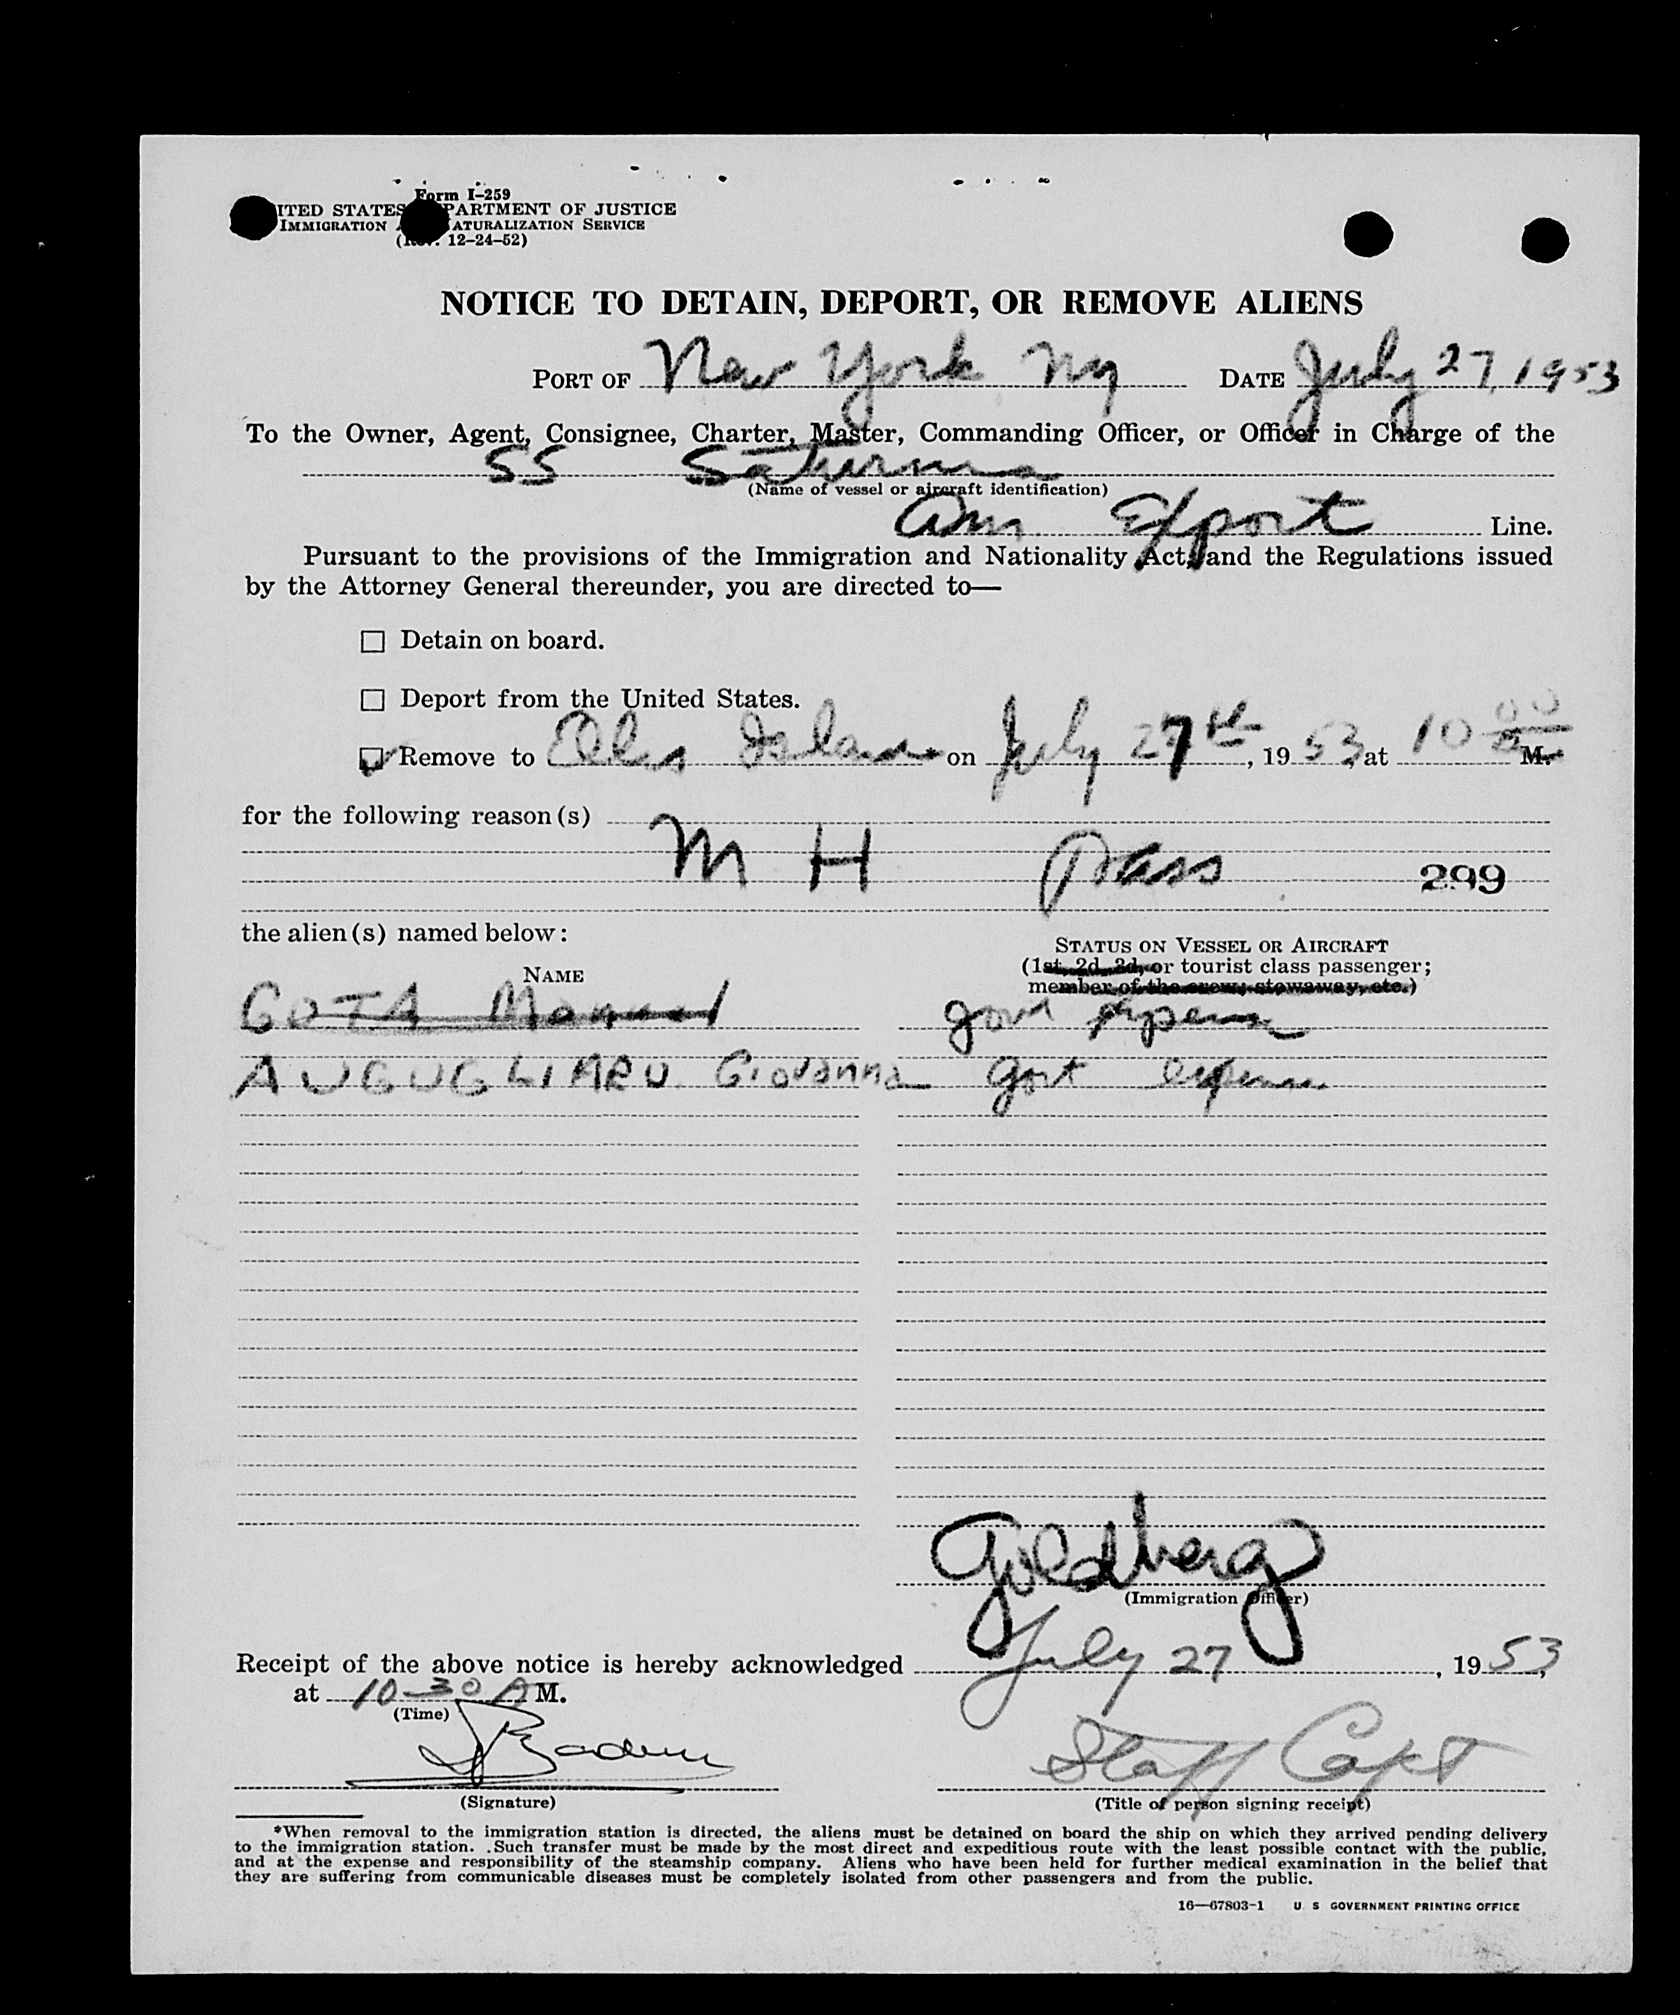 Form I-259
ITED STATES PARTMENT OF JUSTICE
IMMIGRATION ATURALIZATION SERVICE
12-24-52)
NOTICE TO DETAIN, DEPORT, OR REMOVE ALIENS
PORT OF New York NY DATE July 27, 1953
To the Owner, Agent, Consignee, Charter, Master, Commanding Officer, or Officer in Charge of the
SS Saturnia
(Name of vessel or aircraft identification)
Am Export Line.
Pursuant to the provisions of the Immigration and Nationality Act, and the Regulations issued
by the Attorney General thereunder, you are directed to—
☐ Detain on board.
☐ Deport from the United States.
☑ Remove to Ellis Island on July 27th, 1953, at 10 00 M.
for the following reason(s)
M H Pass 299
the alien(s) named below:
STATUS ON VESSEL OR AIRCRAFT
(1st, 2d, 3d, or tourist class passenger;
NAME
member of the crew; stowaway, etc.)
GOTA Manuel govt expense
AUGUGLIARO Giovanna govt expense
Goldberg
(Immigration Officer)
Receipt of the above notice is hereby acknowledged July 27, 1953,
at 10-30 AM.
(Time)
Staff Capt
(Signature) (Title of person signing receipt)
*When removal to the immigration station is directed, the aliens must be detained on board the ship on which they arrived pending delivery
to the immigration station. .Such transfer must be made by the most direct and expeditious route with the least possible contact with the public,
and at the expense and responsibility of the steamship company. Aliens who have been held for further medical examination in the belief that
they are suffering from communicable diseases must be completely isolated from other passengers and from the public.
16—67803-1 U S GOVERNMENT PRINTING OFFICE